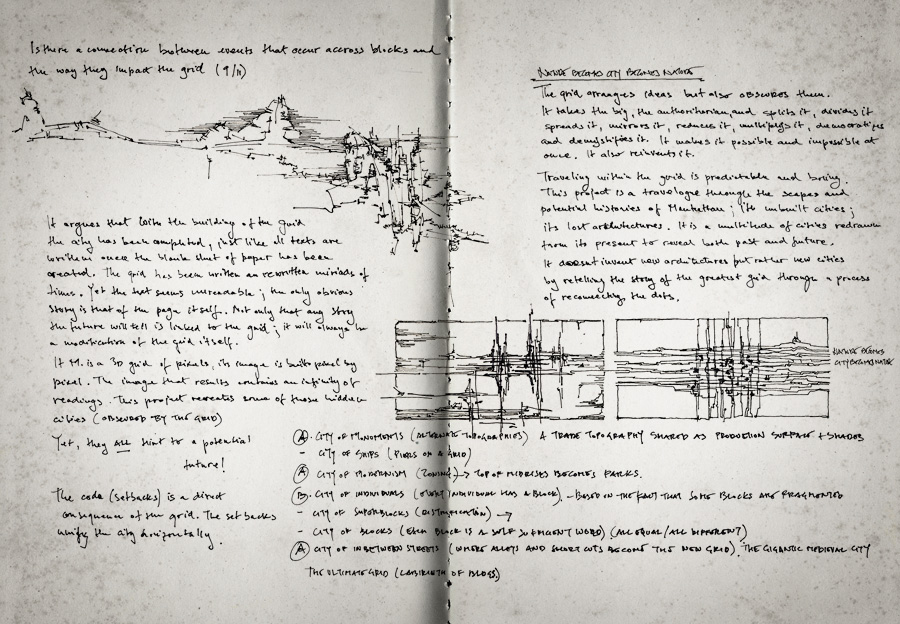 Is there a connection between events that occur accross blocks and
the way they impact the grid (9/11)
It argues that with the building of the grid
the city has been completed, just like all texts are
written once the blank sheet of paper has been
created. The grid has been written an rewritten miriads of
times. Yet the text seems unreadable; the only obvious
story is that of the page itself. Not only that any story
the future will tell is linked to the grid; it will always be
a modification of the grid itself.
If M. is a 3D grid of pixels, its image is built pixel by
pixel. The image that results contains an infinity of
readings. This project recreates some of those hidden
cities (OBSCURED BY THE GRID)
Yet, they ALL hint to a potential
future!
The code (setbacks) is a direct
consequence of the grid. The setbacks
unify the city horizontally.
NATURE BECOMES CITY BECOMES NATURE
The grid arranges ideas but also OBSCURES them.
It takes the big, the authoritarian and splits it, divides it
spreads it, mirrors it, reduces it, multiplys it, democratizes
and demystifies it. It makes it possible and impossible at
once. It also reinvents it.
Traveling within the grid is predictable and boring.
This project is a travelogue through the scapes and
potential histories of Manhattan; its unbuilt cities;
its lost architectures. It is a multitude of cities redrawn
from its present to reveal both past and future.
It doesnt invent new architectures but rather new cities
by retelling the story of the greatest grid through a process
of reconnecting the dots.
NATURE BECOMES
CITY BECOMES NATURE
A. CITY OF MONUMENTS (ALTERNATE TOPOGRAPHIES) A TRADE TOPOGRAPHY SHARED AS PRODUCTION SURFACE + SHADES
- CITY OF SHIPS (PIERS ON A GRID)
A CITY OF MODERNISM (ZONING) → TOP OF MIDRISES BECOMES PARKS.
B. CITY OF INDIVIDUALS (EVERY INDIVIDUAL HAS A BLOCK) - BASED ON THE FACT THAT SOME BLOCKS ARE FRAGMENTED
- CITY OF SUPERBLOCKS (DENSIFICATION) →
- CITY OF BLOCKS (EACH BLOCK IS A SELF SUFFICIENT WORLD) (ALL EQUAL/ALL DIFFERENT)
A CITY OF INBETWEEN STREETS (WHERE ALLEYS AND SHORT CUTS BECOME THE NEW GRID). THE GIGANTIC MEDIEVAL CITY
THE ULTIMATE GRID (LABIRINTH OF BLOGS)